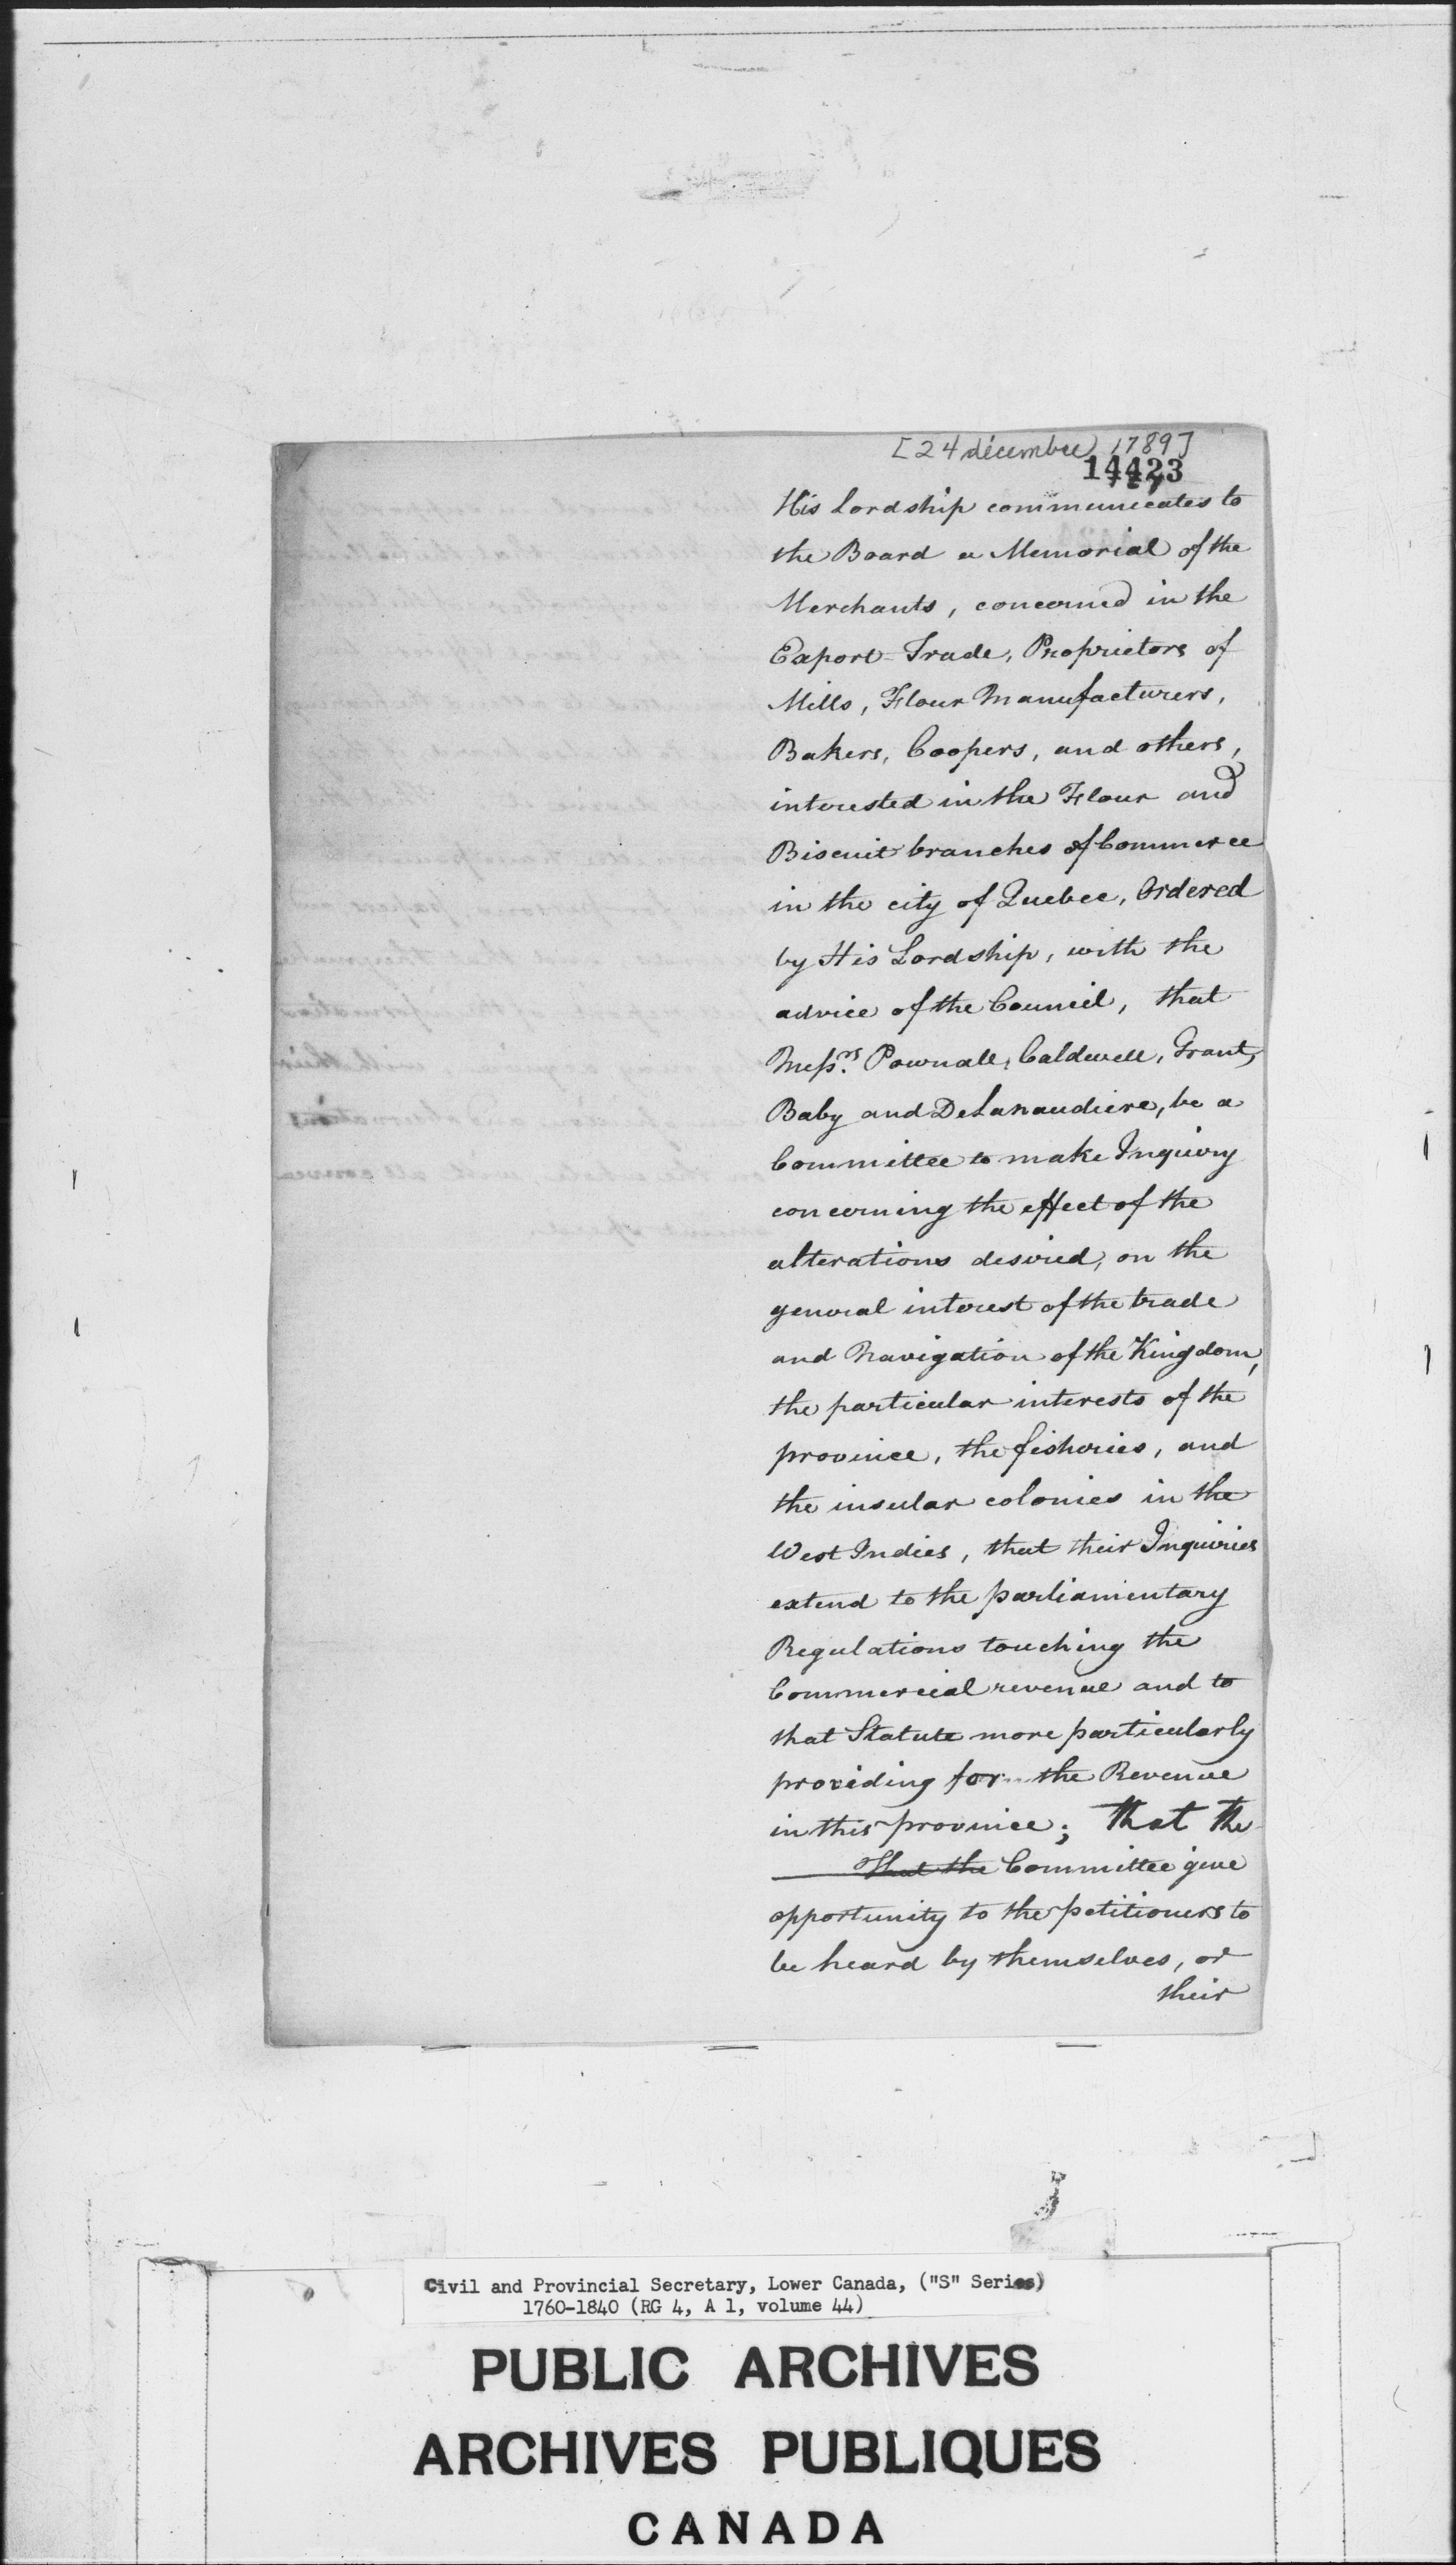 [24 décembre 1789]
14423
His Lordship communicates to
the Board a Memorial of the
Merchants, concerned in the
Export-Trade, Proprietors of
Mills, Flour Manufacturers,
Bakers, Coopers, and others,
interested in the Flour and
Biscuit branches of Commerce
in the city of Quebec, Ordered
by His Lordship, with the
advice of the Council, that
Messrs. Pownall, Caldwell, Grant,
Baby and DeLanaudiere, be a
Committee to make Inquiry
concerning the effect of the
alterations desired, on the
general interest of the trade
and Navigation of the Kingdom,
the particular interests of the
province, the fisheries, and
the insular colonies in the
West Indies, that their Inquiries
extend to the parliamentary
Regulations touching the
Commercial revenue and to
that Statute more particularly
providing for the Revenue
in this province; that the
That the Committee give
opportunity to the petitioners to
be heard by themselves, or
their
Civil and Provincial Secretary, Lower Canada, ("S" Series)
1760-1840 (RG 4, A 1, volume 44)
PUBLIC ARCHIVES
ARCHIVES PUBLIQUES
CANADA